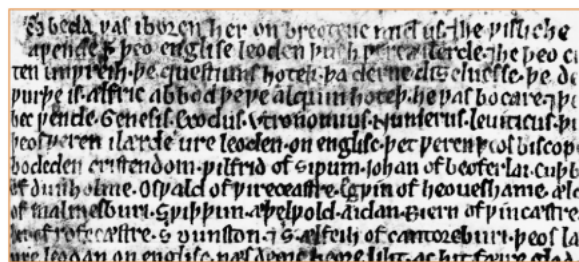 S beda ƿas iboren her on breotene mid us·⁊he ƿisliche
aƿende þ þeo englise leoden þurh ƿeren ilerde·⁊he þeo c
ten unwreih·þe questiuns hoteþ·þa derne diȝelnesse·þe de
ƿurþe is·ælfric abbod þe ƿe alquin hoteþ·he ƿas bocare·⁊þe
bec ƿende·Genesis·Exodus·Vtronomius·Numerus·leuiticus·þu
þeos ƿeren ilærde ure leoden on englisc·þet ƿeren þeos biscop
bodeden cristendom·ƿilfrid of ripum·iohan of beoferlai·cuþb
of dunholme·Osƿald of ƿireceastre·Egƿin of heoueshame·æld
of malmesburi·Sƿiþþun·æþelƿold·aidan·Biern of ƿincæstre·
lin of rofecæstre·S dunston·⁊ S·ælfeih of cantoreburi·þeos læ
ure leodan on englisc·næs deorc heore liht·ac hit fæire glod